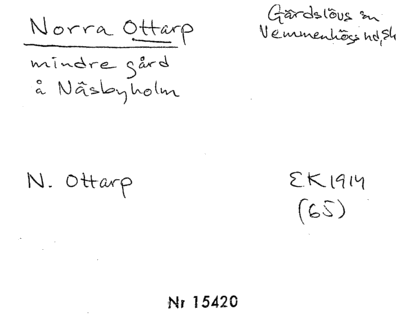 Norra Ottarp
Gärdslövs sn
Vemmenhögs hd, Sk
mindre gård
å Näsbyholm
N. Ottarp
EK 1914
(65)
Nr 15420